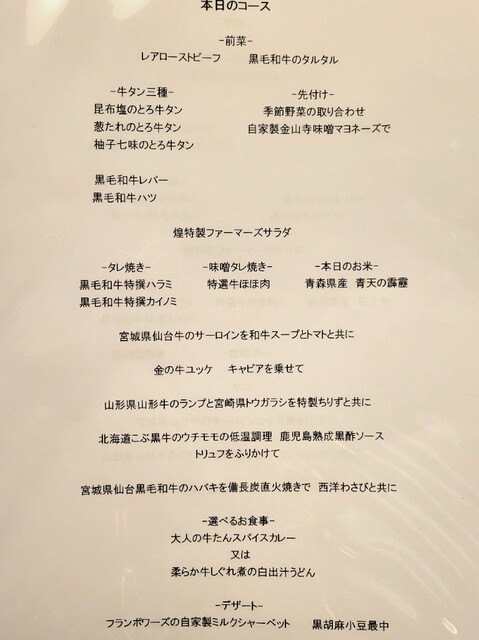 本日のコース
-前菜-
レアローストビーフ　黒毛和牛のタルタル
-牛タン三種-
昆布塩のとろ牛タン
葱たれのとろ牛タン
柚子七味のとろ牛タン
-先付け-
季節野菜の取り合わせ
自家製金山寺味噌マヨネーズで
黒毛和牛レバー
黒毛和牛ハツ
煌特製ファーマーズサラダ
-タレ焼き-
黒毛和牛特撰ハラミ
黒毛和牛特撰カイノミ
-味噌タレ焼き-
特選牛ほほ肉
-本日のお米-
青森県産　青天の霹靂
宮城県仙台牛のサーロインを和牛スープとトマトと共に
金の牛ユッケ　キャビアを乗せて
山形県山形牛のランプと宮崎県トウガラシを特製ちりずと共に
北海道こぶ黒牛のウチモモの低温調理　鹿児島熟成黒酢ソース
トリュフをふりかけて
宮城県仙台黒毛和牛のハバキを備長炭直火焼きで　西洋わさびと共に
-選べるお食事-
大人の牛たんスパイスカレー
又は
柔らか牛しぐれ煮の白出汁うどん
-デザート-
フランボワーズの自家製ミルクシャーベット　黒胡麻小豆最中